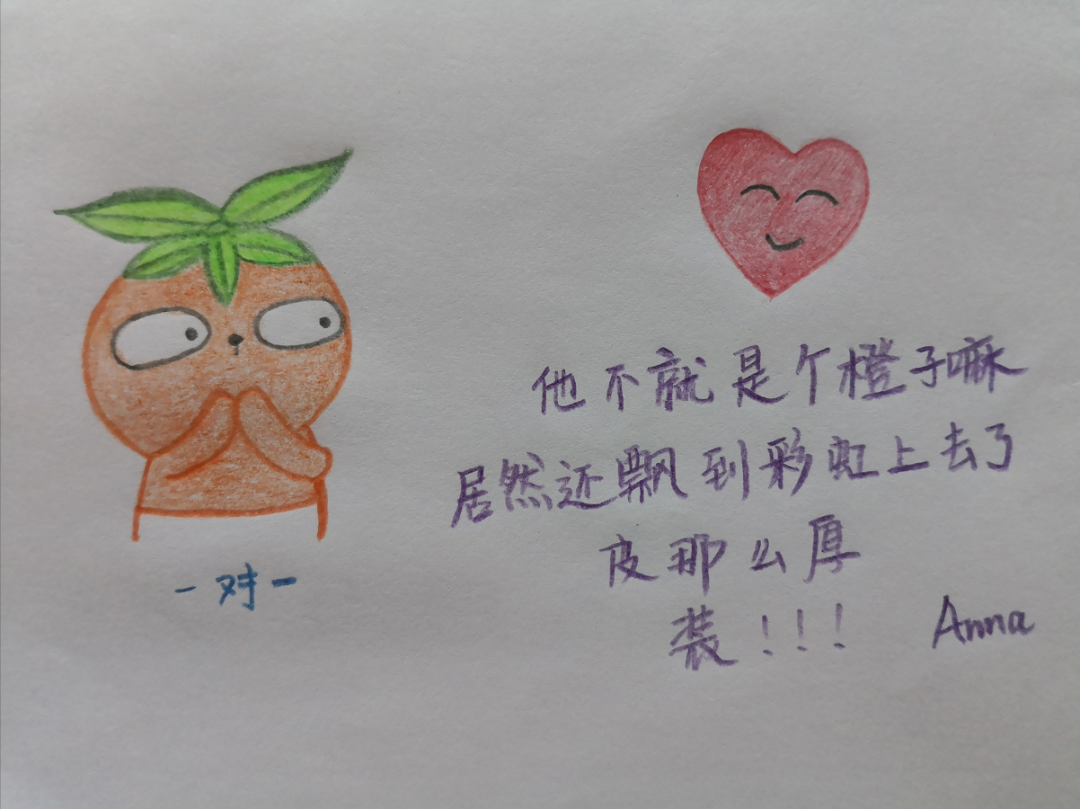 他不就是个橙子嘛
居然还飘到彩虹上去了
皮那么厚
装!!!
Anna
-对-